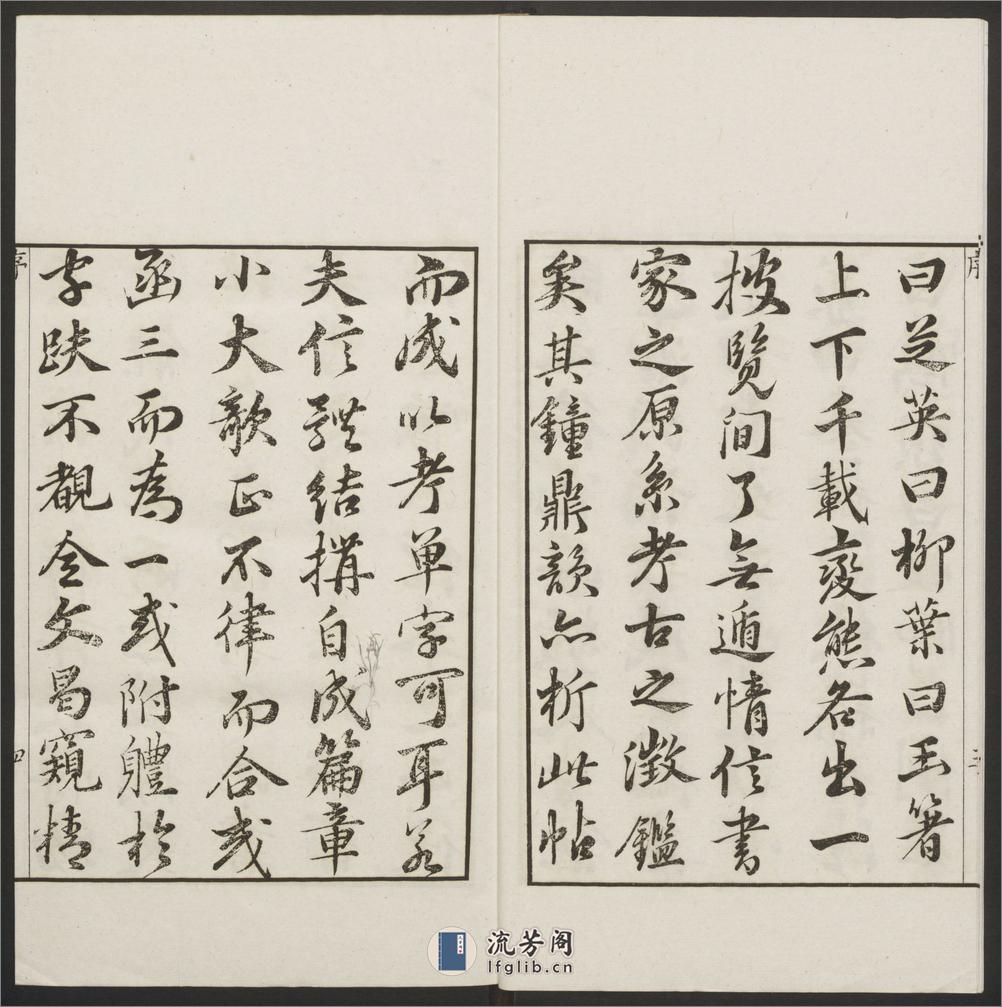 曰芝英曰柳葉曰玉箸
上下千載變態各出一
披覽間了無遁情信書
家之原系考古之澂鑑
矣其鐘鼎韻亦析此帖
而成以考單字可耳若
夫位置結搆自成篇章
小大欹正不律而合或
函三而為一或附體於
字趺不覩全文曷窺精
序
三
序
四
流芳阁
lfglib.cn